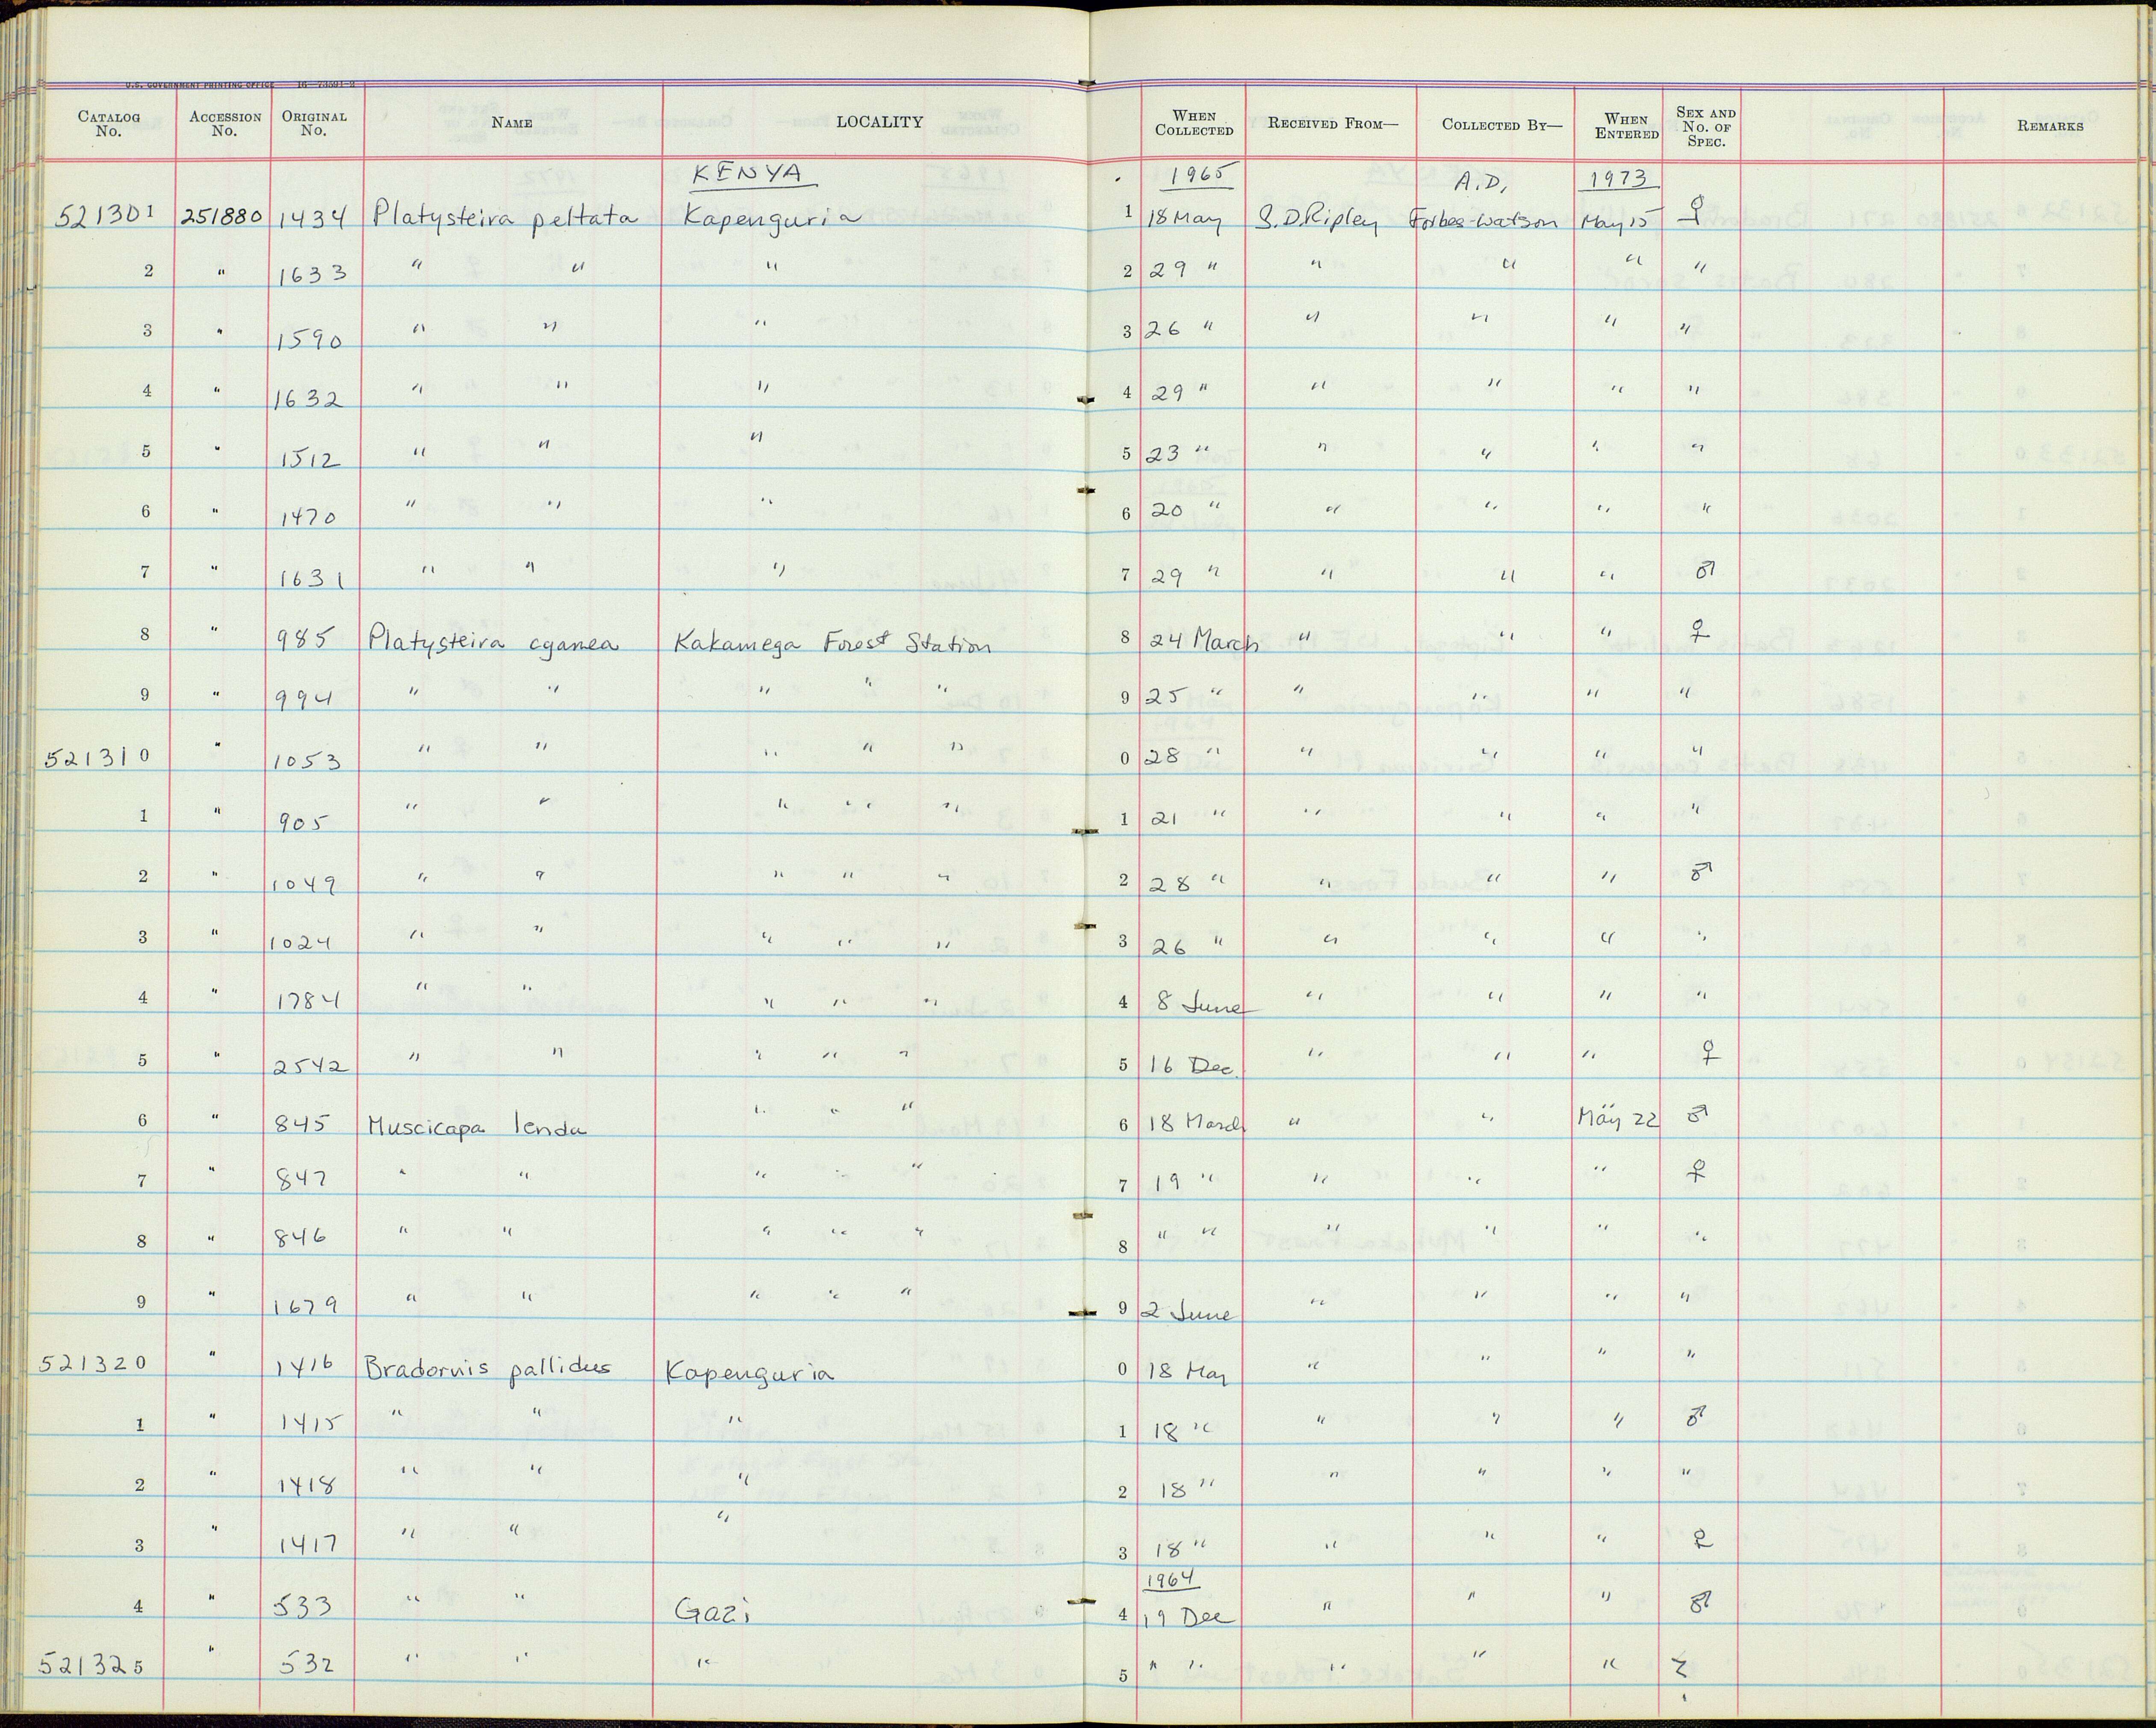 U.S. GOVERNMENT PRINTING OFFICE 16—73591-2
CATALOG No. ACCESSION No. ORIGINAL No. NAME LOCALITY WHEN COLLECTED RECEIVED FROM— COLLECTED BY— WHEN ENTERED SEX AND No. OF SPEC. REMARKS
KENYA 1965 A.D. 1973
521301 251880 1434 Platysteira peltata Kapenguria 1 18 May S.D.Ripley Forbes-Watson May 15 ♀
2 " 1633 " " " 2 29 " " " " "
3 " 1590 " " " 3 26 " " " " "
4 " 1632 " " " 4 29 " " " " "
5 " 1512 " " " 5 23 " " " " "
6 " 1470 " " " 6 20 " " " " "
7 " 1631 " " " 7 29 " " " " ♂
8 " 985 Platysteira cyanea Kakamega Forest Station 8 24 March " " " ♀
9 " 994 " " " " " 9 25 " " " " "
521310 " 1053 " " " " " 0 28 " " " " "
1 " 905 " " " " " 1 21 " " " " "
2 " 1049 " " " " " 2 28 " " " " ♂
3 " 1024 " " " " " 3 26 " " " " "
4 " 1784 " " " " " 4 8 June " " " "
5 " 2542 " " " " " 5 16 Dec. " " " ♀
6 " 845 Muscicapa lenda " " " 6 18 March " " " May 22 ♂
7 " 847 " " " " " 7 19 " " " " ♀
8 " 846 " " " " " 8 " " " " " "
9 " 1679 " " " " " 9 2 June " " " "
521320 " 1416 Bradornis pallidus Kapenguria 0 18 May " " " "
1 " 1415 " " " 1 18 " " " " ♂
2 " 1418 " " " 2 18 " " " " "
3 " 1417 " " " 3 18 " " " " ♀
1964
4 " 533 " " Gazi 4 19 Dec " " " ♂
521325 " 532 " " " 5 " " " " "